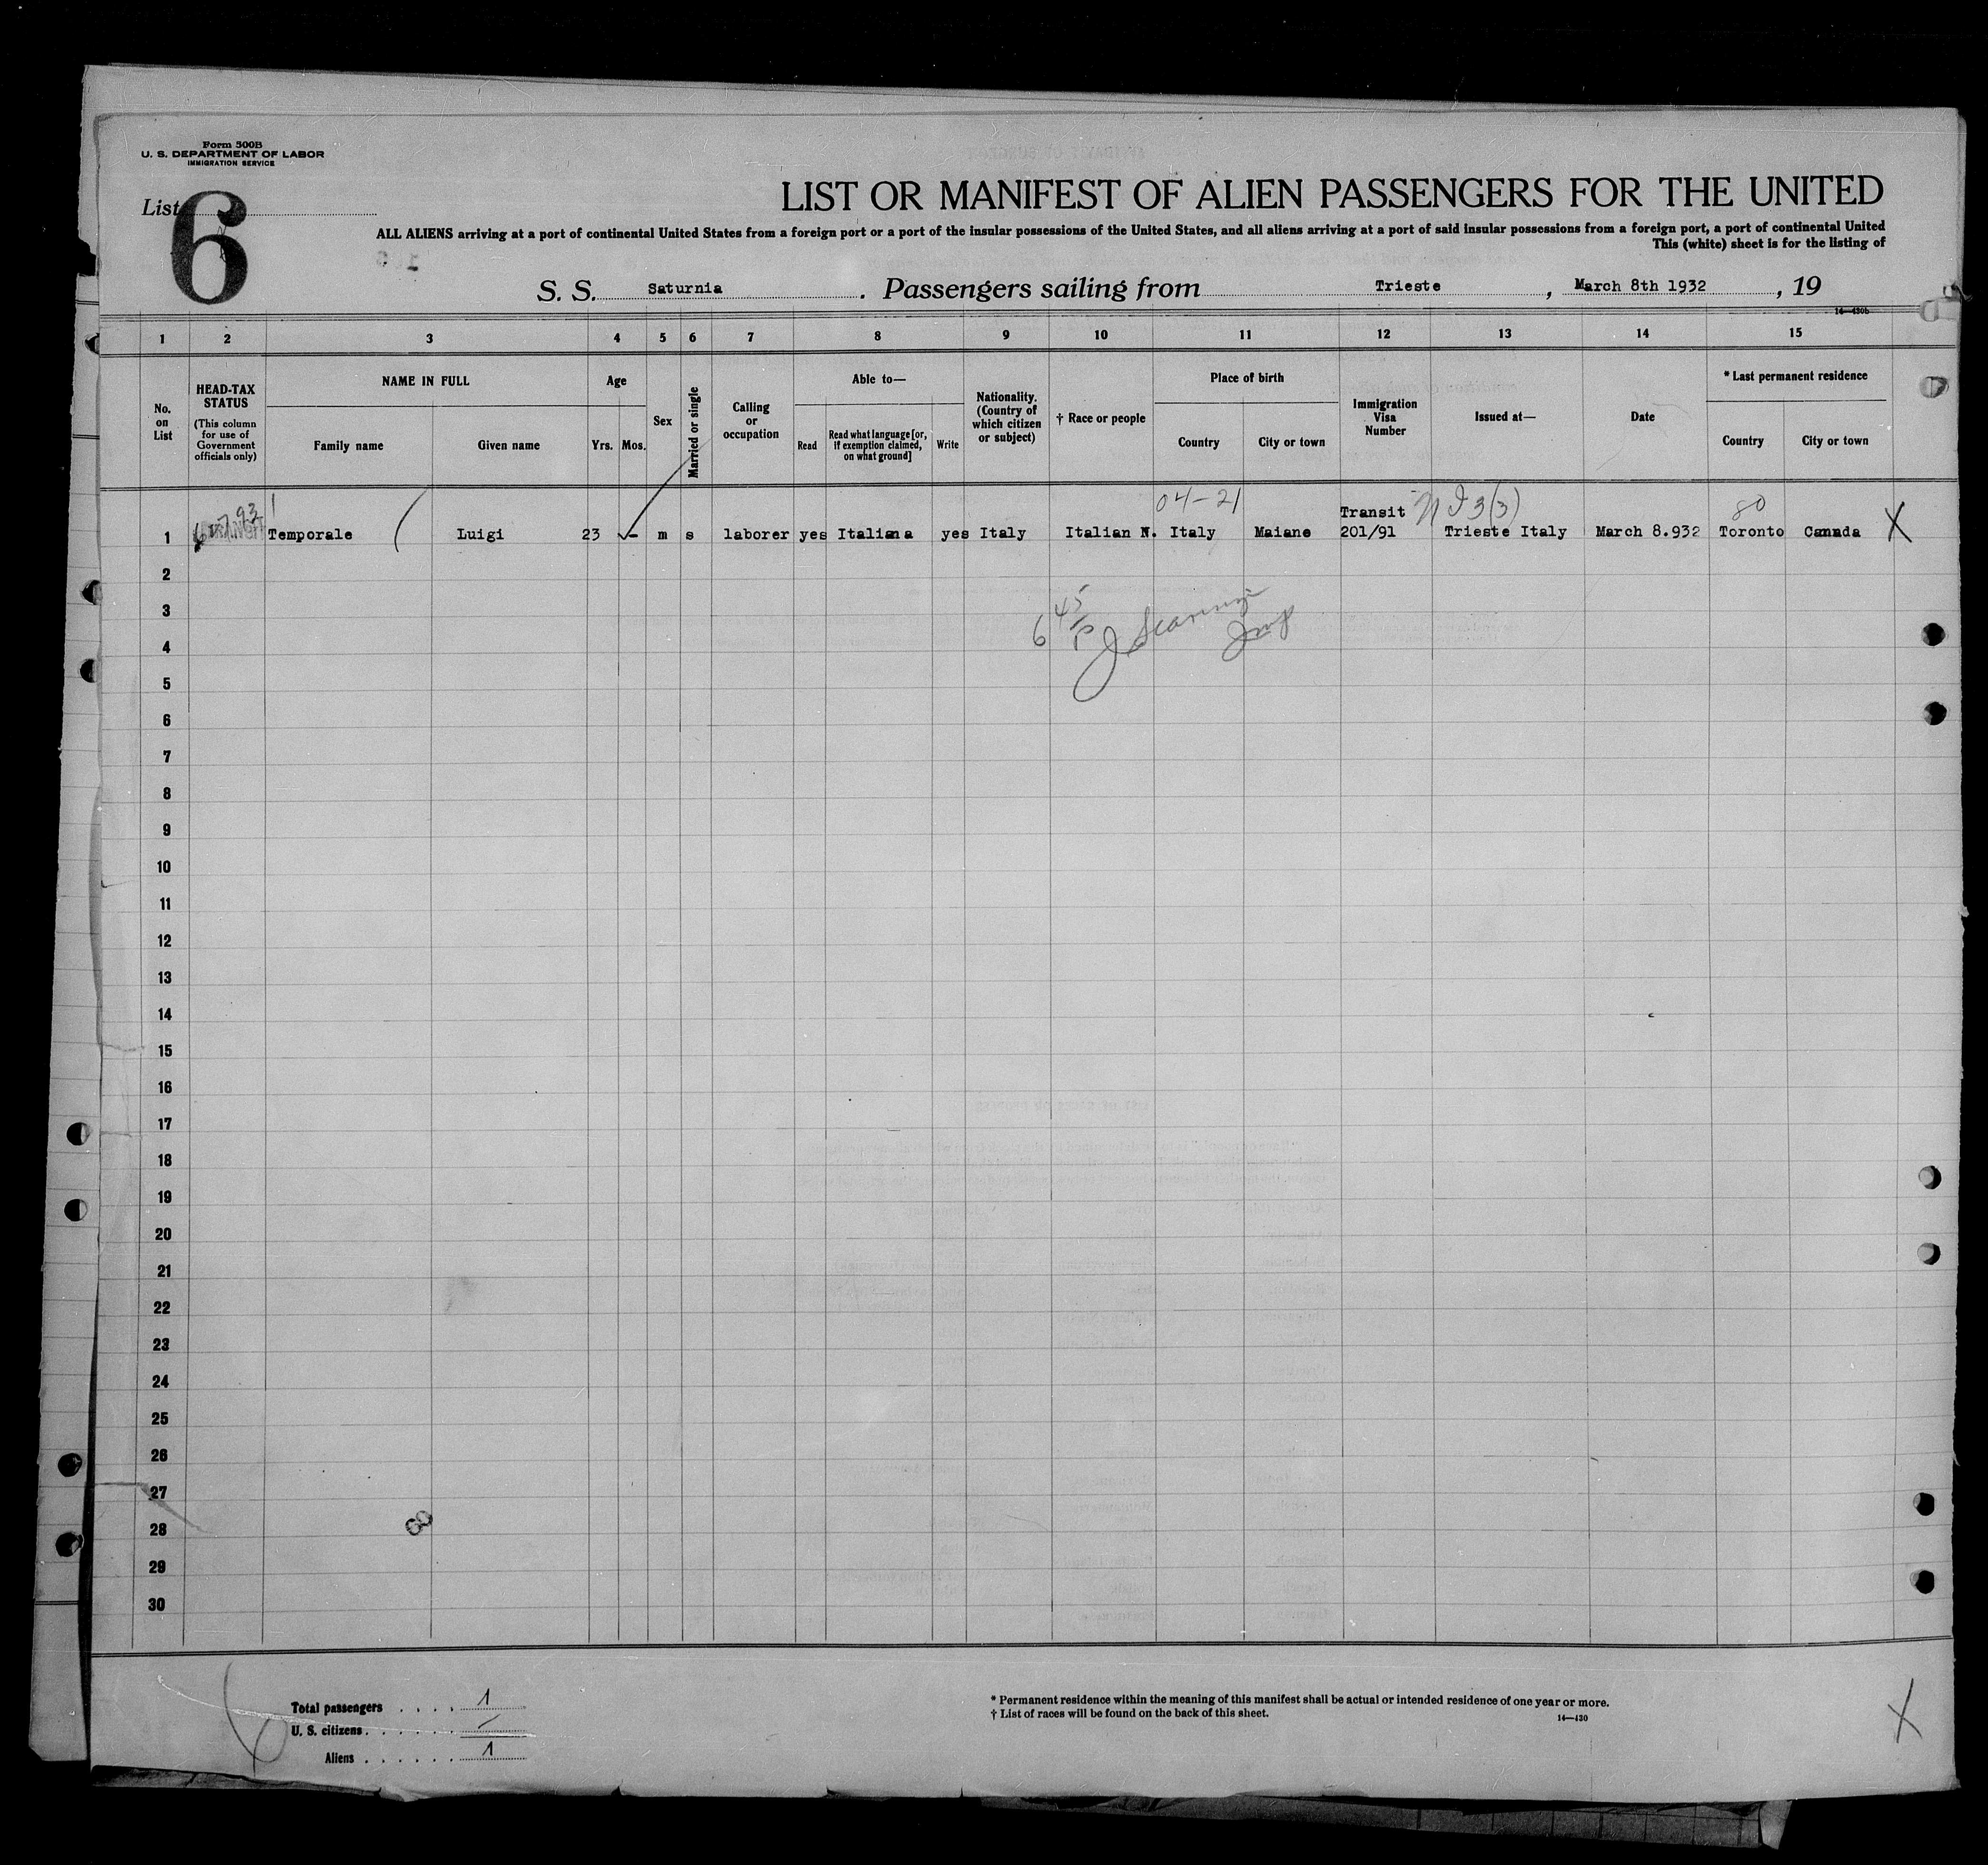 Form 500B
U. S. DEPARTMENT OF LABOR
IMMIGRATION SERVICE
List 6
LIST OR MANIFEST OF ALIEN PASSENGERS FOR THE UNITED
ALL ALIENS arriving at a port of continental United States from a foreign port or a port of the insular possessions of the United States, and all aliens arriving at a port of said insular possessions from a foreign port, a port of continental United
This (white) sheet is for the listing of
S. S. Saturnia. Passengers sailing from Trieste, March 8th 1932, 19
14—430b
1 2 3 4 5 6 7 8 9 10 11 12 13 14 15
No. on List
HEAD-TAX STATUS
(This column for use of Government officials only)
NAME IN FULL
Family name Given name
Age
Yrs. Mos.
Sex
Married or single
Calling or occupation
Able to—
Read
Read what language [or, if exemption claimed, on what ground]
Write
Nationality. (Country of which citizen or subject)
† Race or people
Place of birth
Country City or town
Immigration Visa Number
Issued at—
Date
* Last permanent residence
Country City or town
04-21 80
Transit
1 Temporale Luigi 23 - m s laborer yes Italiana yes Italy Italian N. Italy Maiane 201/91 Trieste Italy March 8.932 Toronto Canada X
2
3
4
5
6
7
8
9
10
11
12
13
14
15
16
17
18
19
20
21
22
23
24
25
26
27
28
29
30
Total passengers . . . . 1
U. S. citizens . . . . . . -
Aliens . . . . . . 1
* Permanent residence within the meaning of this manifest shall be actual or intended residence of one year or more.
† List of races will be found on the back of this sheet.
14—430
X